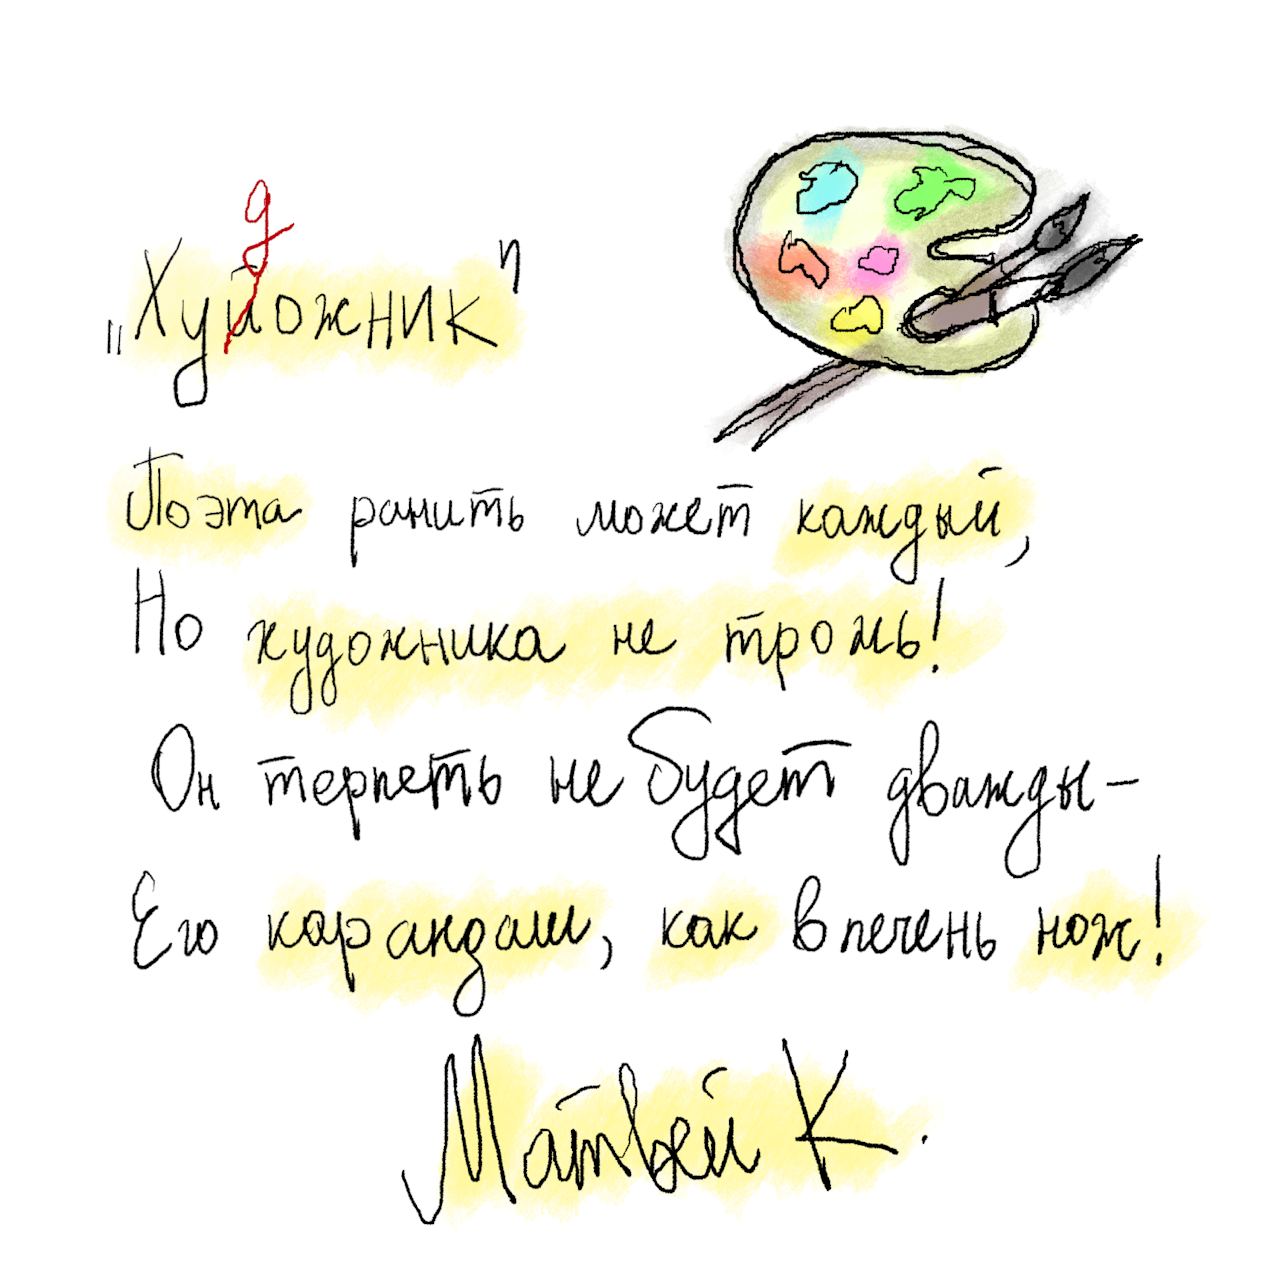 д
„Хуйожник"
Поэта ранить может каждый,
Но художника не трожь!
Он терпеть не будет дважды –
Его карандаш, как в печень нож!
Матвей К.